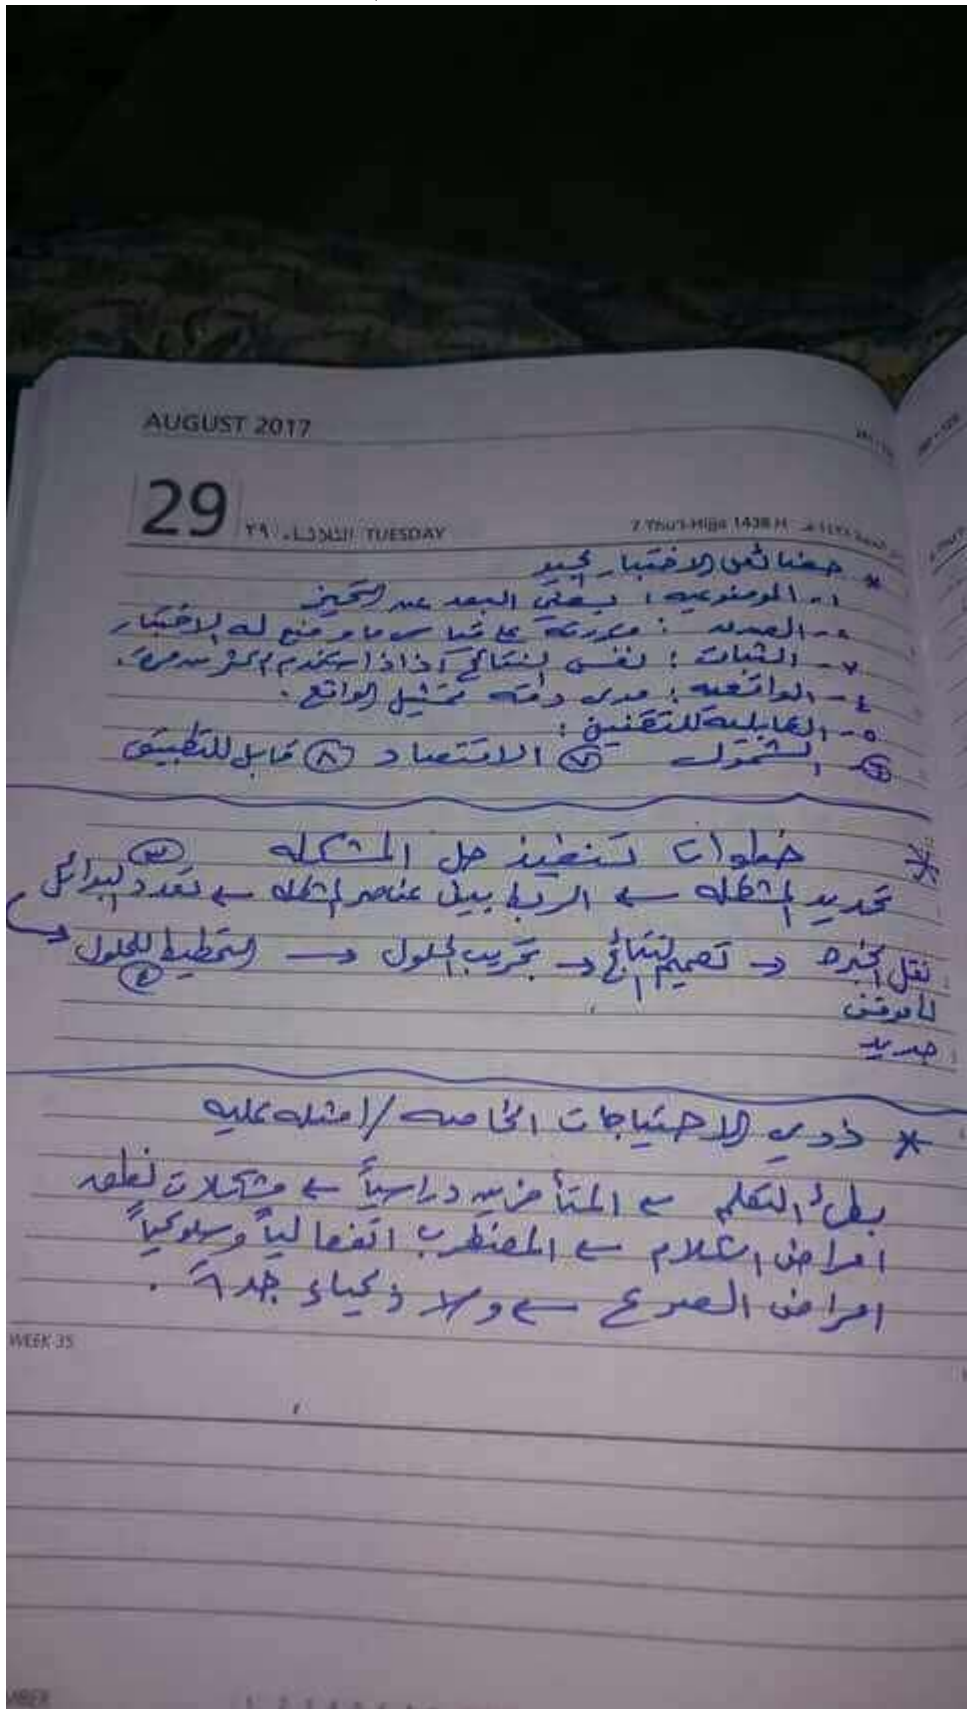 AUGUST 2017
29 ٢٩ الثلاثاء TUESDAY 7 Thu'l-Hijja 1438 H
* خصائص الاختبار الجيد
١- الموضوعيه : يعني البعد عن التحيز
٢- الصدق : قدرته على قياس ما وضع له الاختبار
٣- الثبات : نفس النتائج اذا استخدم اكثر من مرة.
٤- الواقعيه : مدى دقته تمثيل الواقع.
٥- القابلية للتقنين :
٦- الشمول ٧ الاقتصاد ٨ قابل للتطبيق
* خطوات تنفيذ حل المشكله
تحديد المشكله ← الربط بين عناصر المشكله ← ٣ تعدد البدائل
نقل الخبره → تعميم النتائج → تجريب الحلول → التخطيط للحلول ٤
لموقف
جديد
* ذوي الاحتياجات الخاصه / امثله عليه
بطئ التعلم ← المتأخرين دراسياً ← مشكلات نطق
امراض الكلام ← المضطرب انفعالياً وسلوكياً
امراض الصرع ← والاذكياء جداً.
WEEK 35